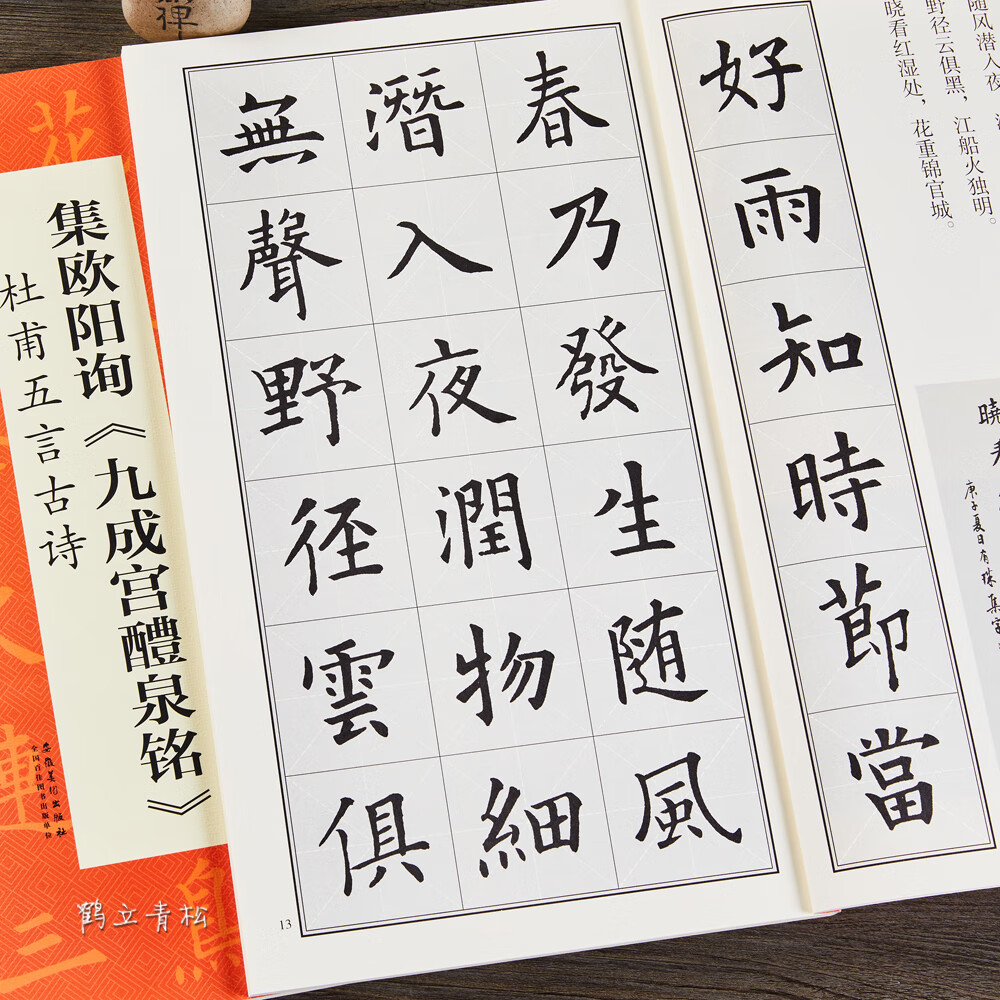 好雨知時節當
春乃發生随風
潛入夜潤物細
無聲野径雲俱
随风潜入夜
野径云俱黑，江船火独明。
晓看红湿处，花重锦官城。
曉看
庚子夏日有
13
集欧阳询《九成宫醴泉铭》
杜甫五言古诗
安徽美术出版社
全国百佳图书出版单位
鹤立青松
禅
花
三